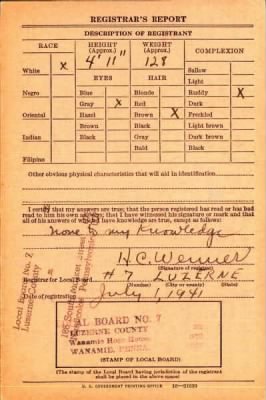 REGISTRAR'S REPORT
DESCRIPTION OF REGISTRANT
RACE HEIGHT (Approx.) WEIGHT (Approx.) COMPLEXION
White X 4' 11" 128 Sallow
EYES HAIR Light
Negro Blue Blonde Ruddy X
Gray X Red Dark
Oriental Hazel Brown X Freckled
Brown Black Light brown
Indian Black Gray Dark brown
Bald Black
Filipino
Other obvious physical characteristics that will aid in identification
I certify that my answers are true; that the person registered has read or has had
read to him his own answers; that I have witnessed his signature or mark and that
all of his answers of which I have knowledge are true, except as follows:
None to my Knowledge
H.C. Wenner
(Signature of registrar)
Registrar for Local Board #7 LUZERNE
(Number) (City or county) (State)
Date of registration July 1, 1941
Local Board No. 7
Luzerne County
AL BOARD NO. 7
LUZERNE COUNTY
Wanamie Hose House
WANAMIE, PENNA.
(STAMP OF LOCAL BOARD)
(The stamp of the Local Board having jurisdiction of the registrant
shall be placed in the above space)
U. S. GOVERNMENT PRINTING OFFICE